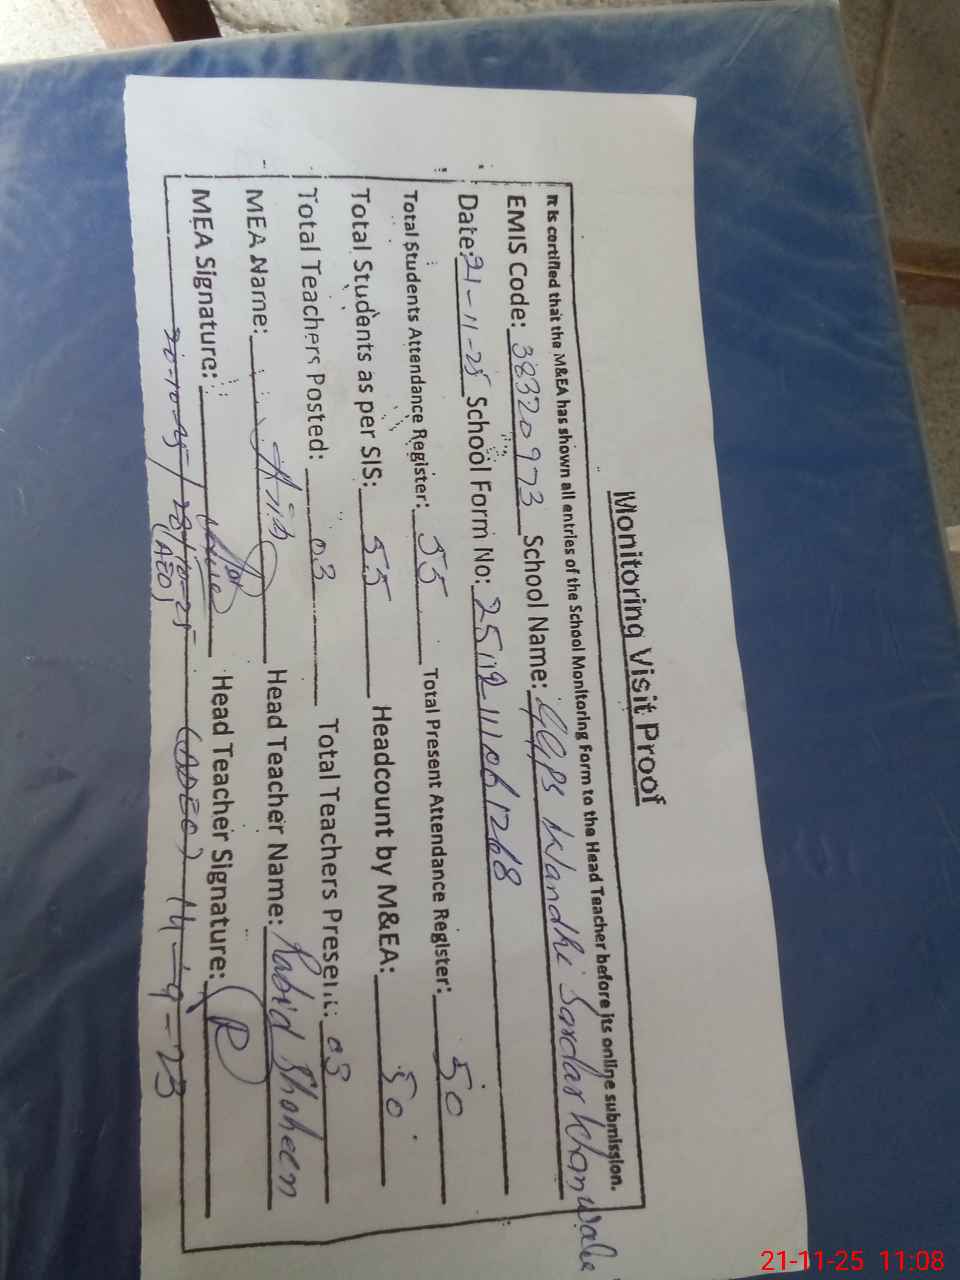 Monitoring Visit Proof
It is certified that the M&EA has shown all entries of the School Monitoring Form to the Head Teacher before its online submission.
EMIS Code: 38320973 School Name: GGPS Wandhi Sardar Khanwala
Date: 21-11-25 School Form No:
Total Students Attendance Register: 55 Total Present Attendance Register: 50
Total Students as per SIS: 55 Headcount by M&EA: 50
Total Teachers Posted: 03 Total Teachers Present: 03
MEA Name: Head Teacher Name: Shaheen
MEA Signature: Head Teacher Signature: R
20-10-25 / 28-10-25 (ADEO) 14-9-23
(AEO)
21-11-25 11:08